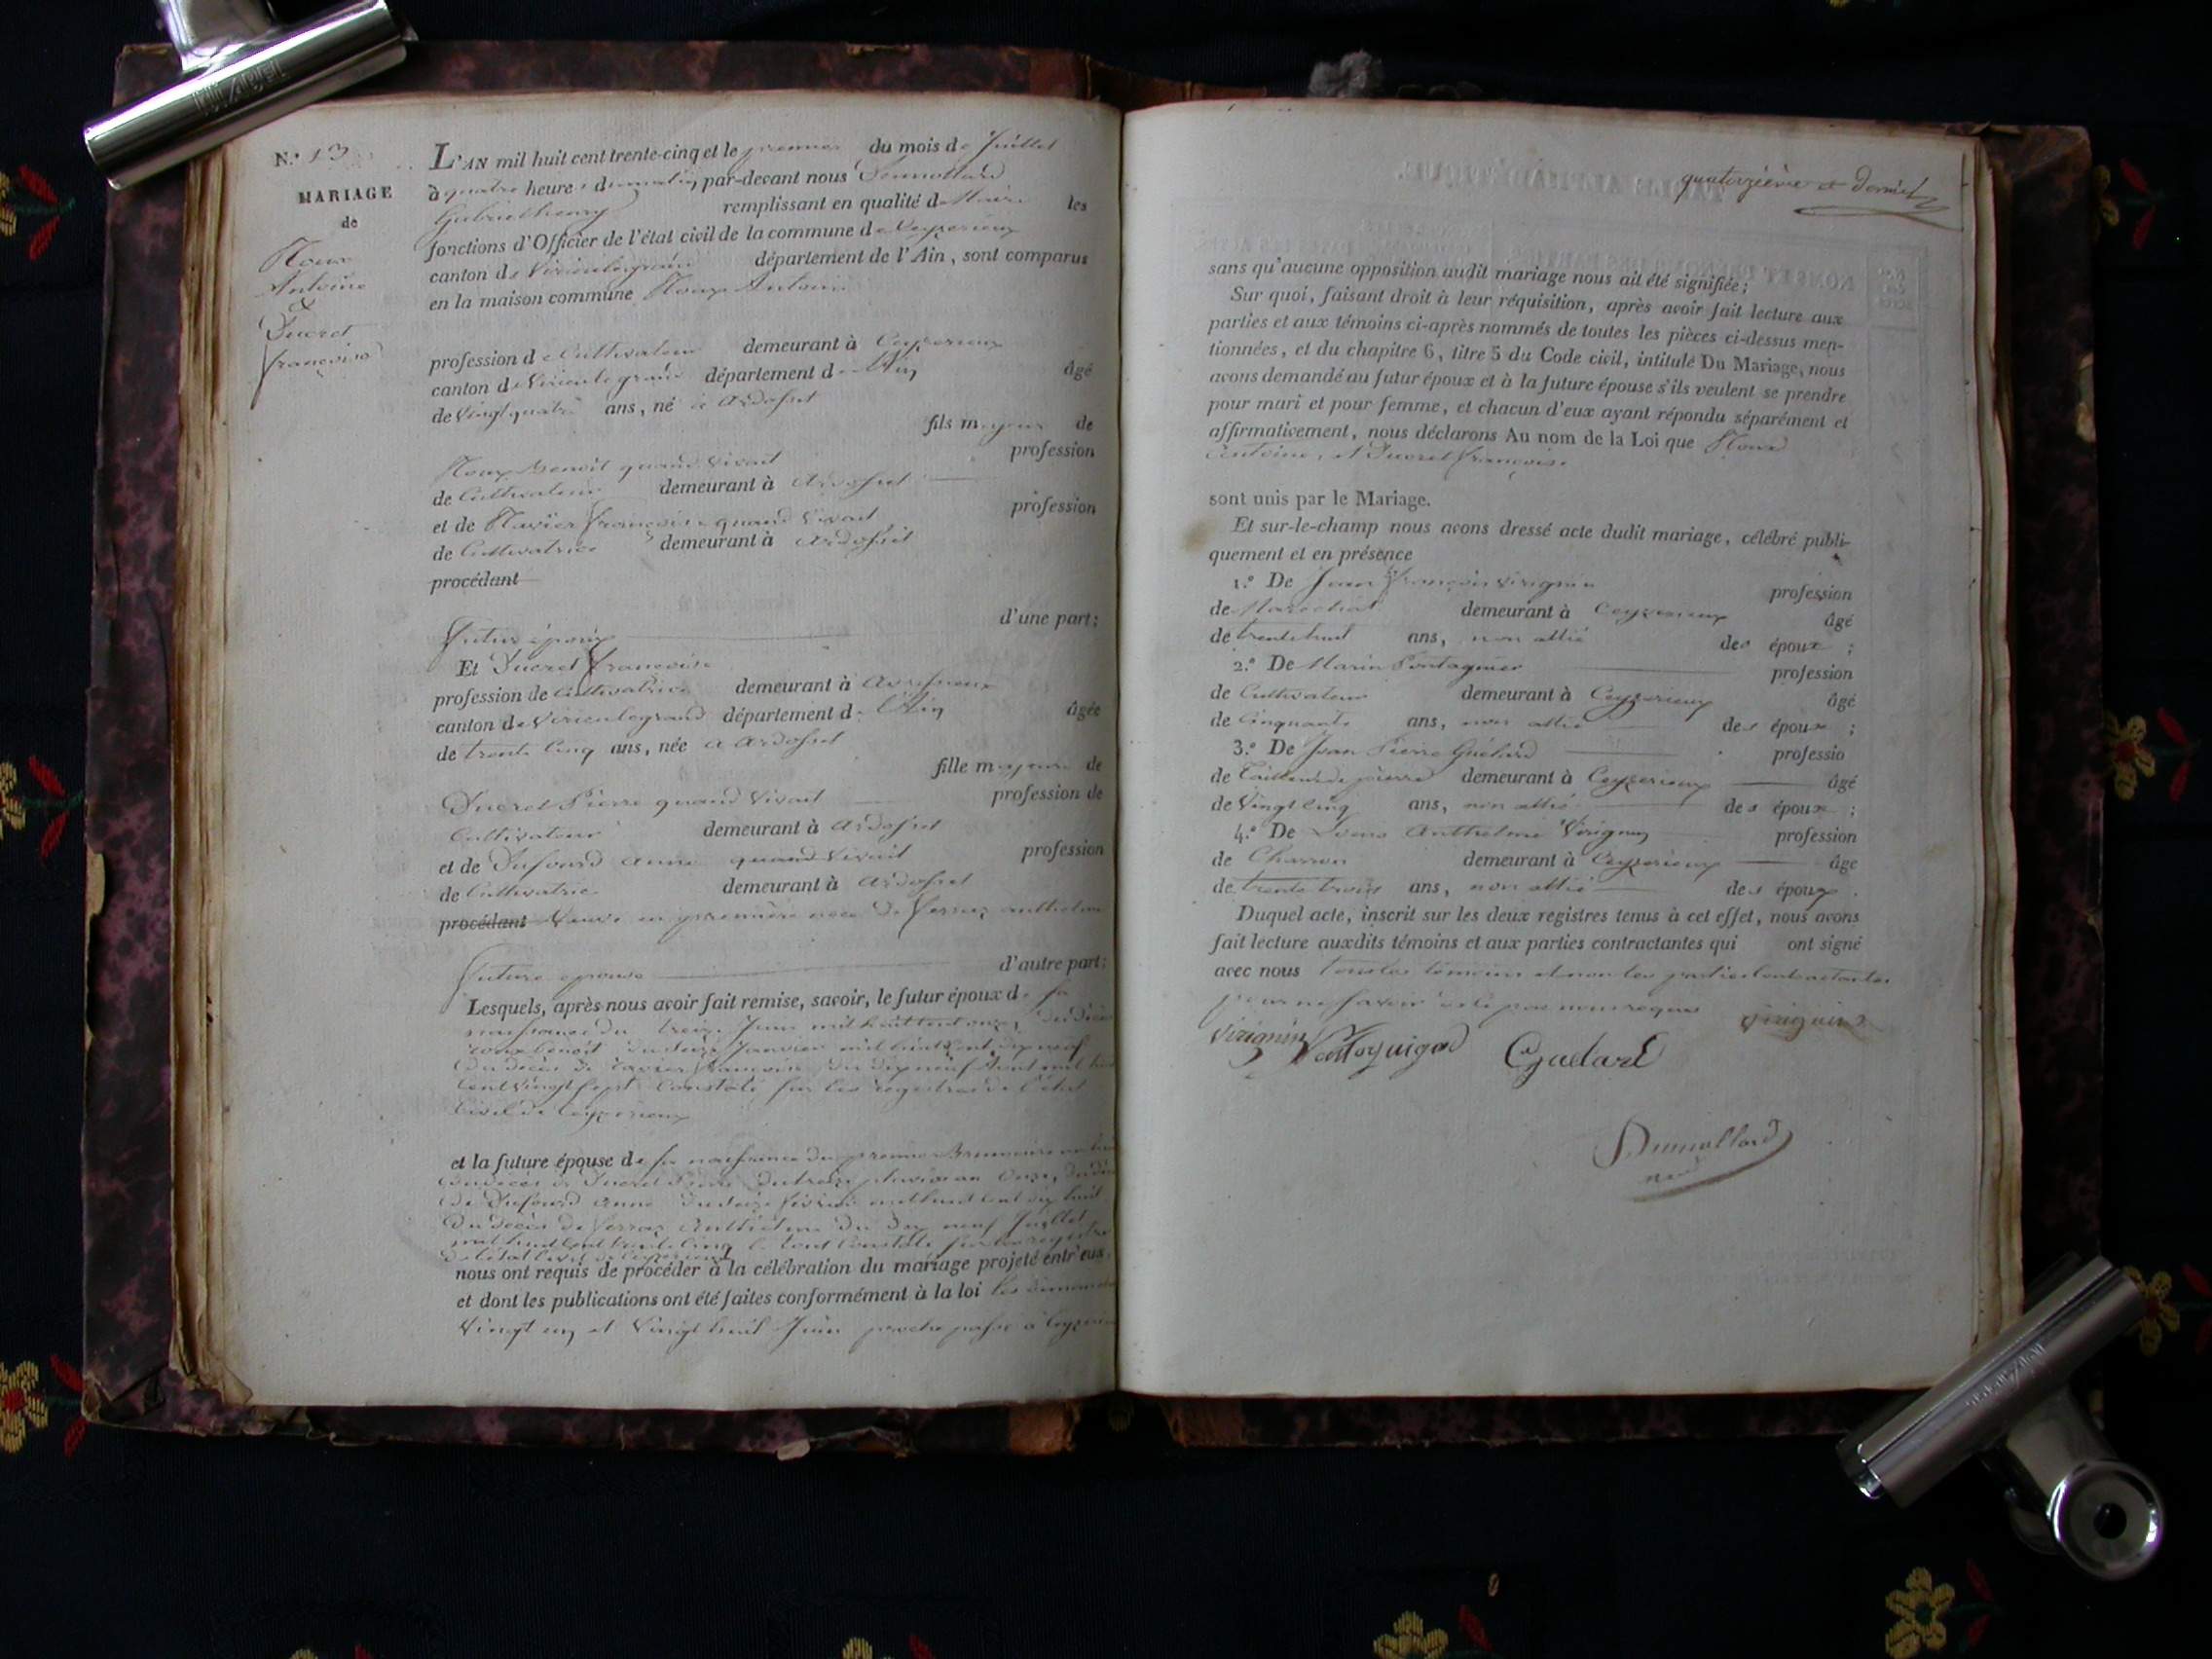 N.° 13
MARIAGE
de
Roux
Antoine
&
Ducret
françoise
L'AN mil huit cent trente-cinq et le premier du mois de Juillet
à quatre heures du matin par-devant nous Dumollard
Gabriel henry remplissant en qualité de Maire les
fonctions d'Officier de l'état civil de la commune de Ceyzerieux
canton de Virieu le grand département de l'Ain, sont comparus
en la maison commune Roux Antoine
profession de Cultivateur demeurant à Ceyzerieux
canton de Virieu le grand département de l'Ain âgé
de Vingt quatre ans, né à Ardosset
fils majeur de
Roux Benoit quand vivait profession
de Cultivateur demeurant à Ardosset
et de françoise quand vivait profession
de Cultivatrice demeurant à Ardosset
procédant
d'une part;
futur époux
Et Ducret françoise
profession de Cultivatrice demeurant à
canton de Virieu le grand département de l'Ain âgée
de trente cinq ans, née à Ardosset
fille majeure de
Ducret Pierre quand vivait profession de
Cultivateur demeurant à Ardosset
et de Dufourd anne quand vivait profession
de Cultivatrice demeurant à Ardosset
procédant Veuve en première noce de
future épouse d'autre part;
Lesquels, après nous avoir fait remise, savoir, le futur époux de sa
naissance du treize Juin mil huit cent onze, du décès
roux benoit du Janvier mil huit cent dix neuf
du décès de françoise du dix neuf Aout mil huit
cent vingt sept constaté sur les registres de l'état
Civil de Ceyzerieux
et la future épouse de sa naissance du premier Brumaire an
du décès de Ducret Pierre du treize pluviose an onze, du décès
de Dufourd anne du février mil huit cent dix huit
du décès de du dix neuf Juillet
le tout constaté sur les registres
de l'état Civil de Ceyzerieux
nous ont requis de procéder à la célébration du mariage projeté entr'eux,
et dont les publications ont été faites conformément à la loi les dimanches
Vingt un et Vingt huit Juin proche passé à Ceyzerieux
quatorzième et dernier
sans qu'aucune opposition audit mariage nous ait été signifiée;
Sur quoi, faisant droit à leur réquisition, après avoir fait lecture aux
parties et aux témoins ci-après nommés de toutes les pièces ci-dessus men-
tionnées, et du chapitre 6, titre 5 du Code civil, intitulé Du Mariage, nous
avons demandé au futur époux et à la future épouse s'ils veulent se prendre
pour mari et pour femme, et chacun d'eux ayant répondu séparément et
affirmativement, nous déclarons Au nom de la Loi que Roux
Antoine, et Ducret françoise
sont unis par le Mariage.
Et sur-le-champ nous avons dressé acte dudit mariage, célébré publi-
quement et en présence
1.° De Jean françois Virignin profession
de Maréchal demeurant à Ceyzerieux âgé
de trente huit ans, non allié des époux ;
2.° De Marin profession
de Cultivateur demeurant à Ceyzerieux âgé
de Cinquante ans, non allié des époux ;
3.° De Jean Pierre Guélard professio
de Tailleur de pierre demeurant à Ceyzerieux âgé
de Vingt Cinq ans, non allié des époux ;
4.° De Louis Anthelme Virignin profession
de Charron demeurant à Ceyzerieux âge
de trente trois ans, non allié des époux .
Duquel acte, inscrit sur les deux registres tenus à cet effet, nous avons
fait lecture auxdits témoins et aux parties contractantes qui ont signé
avec nous tous les témoins et non les parties Contractantes
pour ne savoir de ce par nous requis
Virignin
Dumollard